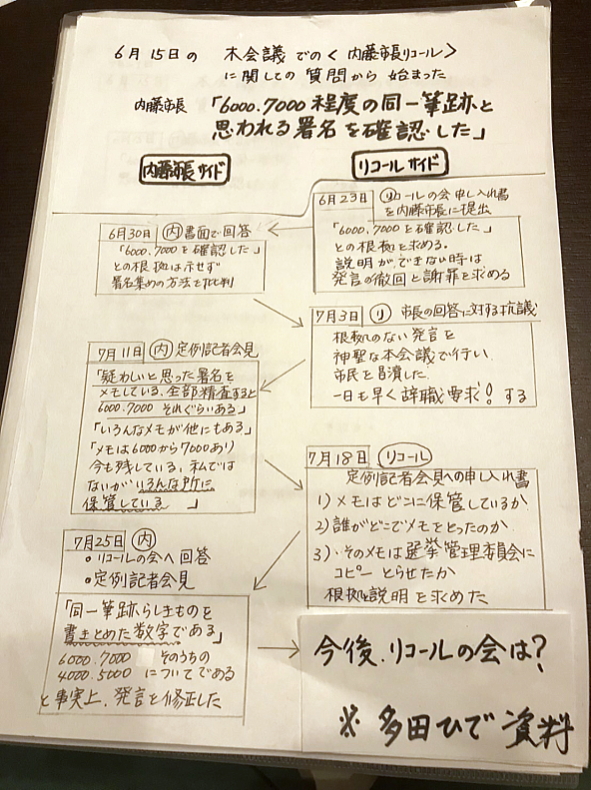 6月15日の 本会議での〈内藤市長リコール〉
に関しての質問から始まった
内藤市長 「6000.7000程度の同一筆跡と
思われる署名を確認した」
内藤市長サイド
リコールサイド
6月23日 リコールの会申し入れ書
を内藤市長に提出
「6000.7000を確認した」
との根拠を求める。
説明ができない時は
発言の撤回と謝罪を求める
6月30日 内 書面で回答
「6000.7000を確認した」
との根拠は示せず
署名集めの方法を批判
7月3日 リ 市長の回答に対する抗議
根拠のない発言を
神聖な本会議で行い、
市民を冒瀆した
一日も早く辞職要求!する
7月11日 内 定例記者会見
「疑わしいと思った署名を
メモしている、全部精査すると
6000.7000それぐらいある」
「いろんなメモが他にもある」
「メモは6000から7000あり
今も残している、私では
ないがいろんな所に
保管している 」
7月18日 リコール
定例記者会見への申し入れ書
1)メモはどこに保管しているか
2)誰がどこでメモをとったのか
3)そのメモは選挙管理委員会に
コピーとらせたか
根拠と説明を求めた
7月25日 内
・リコールの会へ回答
・定例記者会見
「同一筆跡らしきものを
書きとめた数字である」
6000.7000 そのうちの
4000.5000 についてである
と事実上、発言を修正した
今後、リコールの会は?
※多田ひで資料